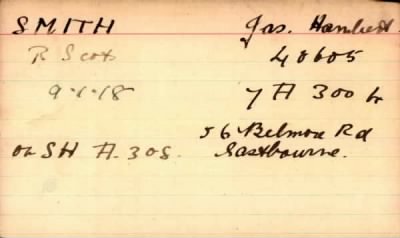 SMITH Jas. Hambert
R Scots 40605
9.1.18 7 A 300
56 Belmore Rd
SH A. 308. Eastbourne.